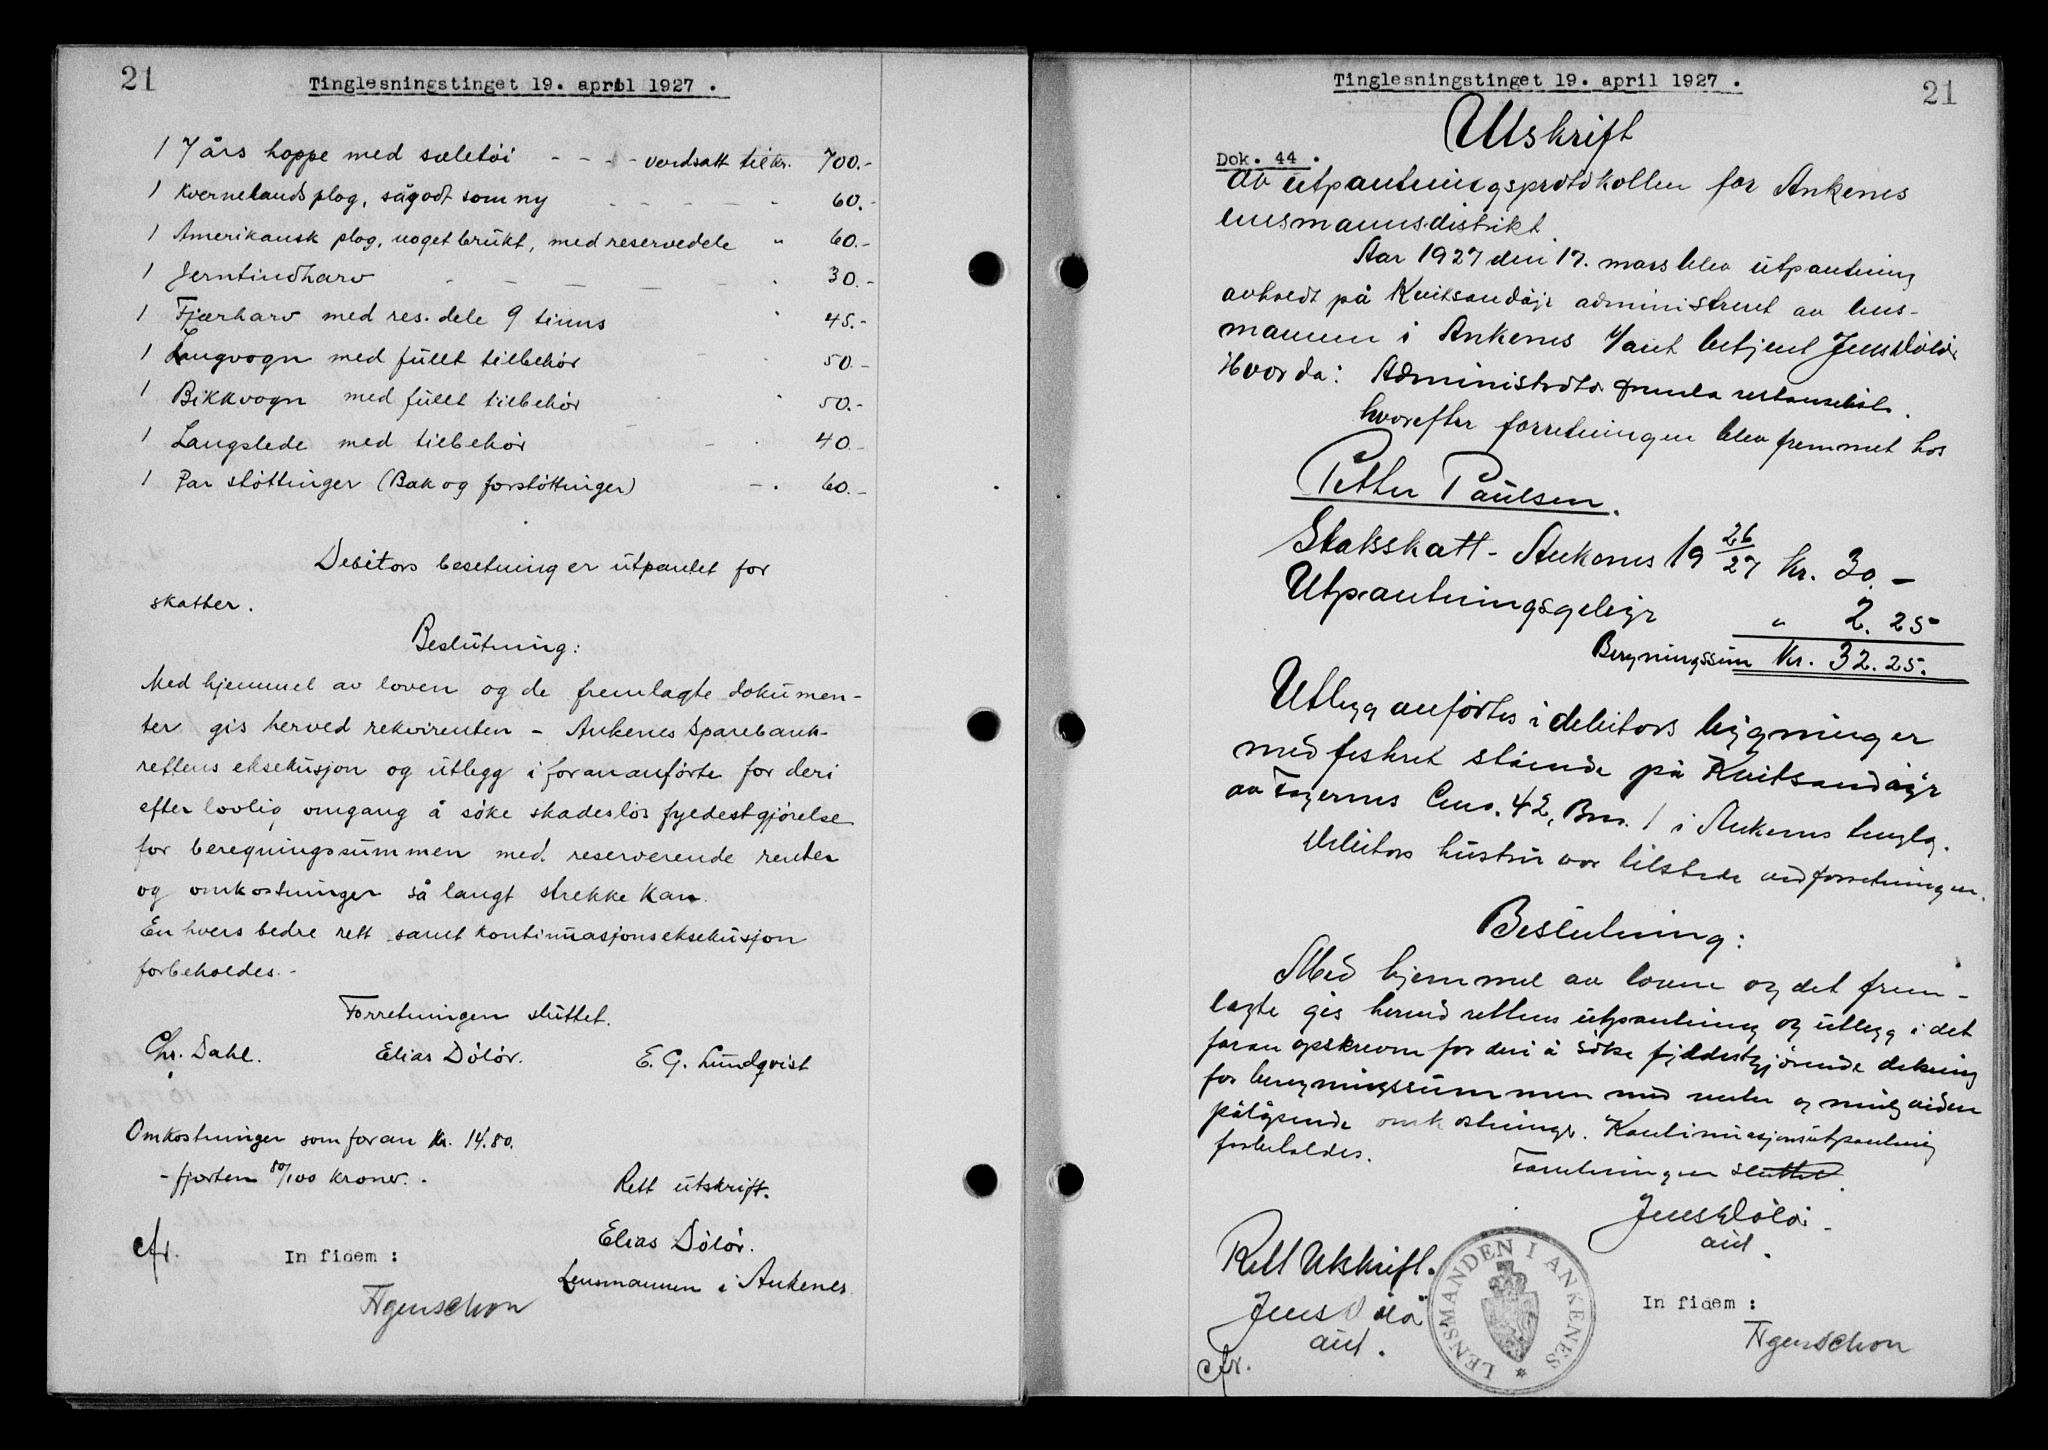 21
Tinglesningstinget 19. april 1927 .
1 7 års hoppe med seletöi - - - - verdsatt til kr. 700.-
1 Kvernelands plog, sågodt som ny - - - - - 60.-
1 Amerikansk plog, noget brukt, med reservedele " 60.-
1 Jerntindharv - - - - - 30.-
1 Fjærharv med res. dele 9 tinns 45.-
1 Langvogn med fullt tilbehör 50.-
1 Bikkvogn med fullt tilbehör 50.-
1 Langslede med tilbehör - . 40.-
1 Par stöttinger (Bak og forstöttinger) - . 60.-
Debitors besetning er utpantet for
skatter.
Beslutning:
Med hjemmel av loven og de fremlagte dokumen-
ter gis herved rekvirenten - Ankenes Sparebank -
rettens eksekusjon og utlegg i forananförte for deri
efter lovlig omgang å söke skadeslös fyldestgjörelse
for beregningssummen med reserverende renter
og omkostninger så langt strekke kan.
En hvers bedre rett samt kontinuasjonseksekusjon
forbeholdes.-
Forretningen sluttet.
Chr. Dahl. Elias Dölör. E. G. Lundqvist
Omkostninger som foran kr. 14.80.
- fjorten 80/100 kroner. -
Rett utskrift.
Elias Dölör.
Lensmannen i Ankenes
cfr.
In fidem :
Tingenschon
21
Tinglesningstinget 19. april 1927 .
Utskrift
Dok. 44 .
av utpantningsprotokollen for Ankenes
lensmannsdistrikt.
Aar 1927 den 17. mars blev utpantning
avholdt på Kvitsandöjr administreret av lens-
mannen i Ankenes v/aut betjent Jens Dölör
Hvorda: Administrator fremla restanseliste.
hvorefter forretningen blev fremmet hos
Petter Paulsen.
Statsskatt - Ankenes 19 26/27 kr. 30.-
Utpantningsgebyr " 2.25
Beregningssum Kr. 32.25.
Utlegg anförtes i debitors bygninger
med feskret stående på Kvitsandöjr
av Fagernes Gno. 42, Bno. 1 i Ankenes tinglag.
Debitors hustru var tilstede ved forretningen.
Beslutning:
Med hjemmel av loven og det frem-
lagte gis herved rettens utpantning og utlegg i det
foran opskrevne for deri å söke fyldestgjörende dekning
for beregningssummen med renter og mulig videre
pålöpende omkostninger. Kontinuasjonsutpantning
forbeholdes.
Forretningen sluttet.
Jens Dölör
aut.
Rett Utskrift.
Jens Dölör
aut.
LENSMANDEN I ANKENES
In fidem :
cfr.